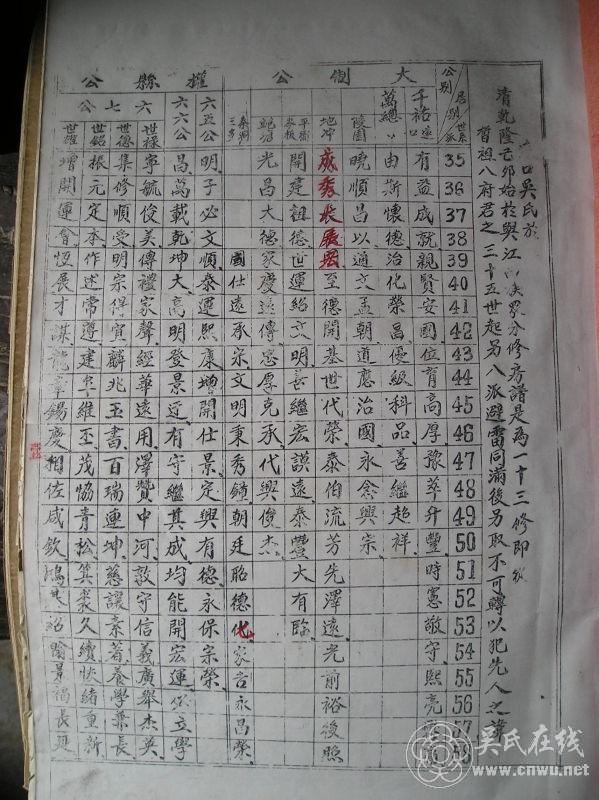 口吳氏於
清乾隆己卯始於興江 眾分修房譜是爲一十三修即
哲祖八府君之三十五世起另八派避雷同滿後另取不可轉以犯先人之諱
公別 居別 世系派
35 36 37 38 39 40 41 42 43 44 45 46 47 48 49 50 51 52 53 54 55 56 57 58
大側公
千祐 有益成就親賢安國位育高厚豫萃升豐時憲敬守熙亮
萬總 由斯懷德治化榮昌優級科品善繼超祥
陵園 曉順昌以通文孟朝道應治國永念興宗
地冲 成秀长展兴至德開基世代榮泰伯流芳先澤遠光前裕後照
平衡 開建詛德世運紹文明善繼宏謨遠泰豐大有臨
光昌大德家慶遠傳忠厚克承代興俊杰
三多 國仕遠承宗文明秉秀鐘朝廷昭德化家吉永昌榮
權縣公
六五公 明子必文順泰運熙康坤開仕景定興有德永保宗榮
六六公 昌萬載乾坤大高明登景近有守繼其成均能開宏運 立學
六七公
世祿 寧毓俊美傳禮家聲經華遠用澤贊中河敦守信義廣舉杰英
世德 集修順受明宗得寅麟兆玉書百瑞連坤慈讓素著養學業長
世銘 根元定本作述常遵建 維丕茂協青松箕裘久續快緒重新
世耀 增開運會恆展才謀龍章錫慶相佐咸欽鴻 紹 景福長延
吳氏在线
www.cnwu.net